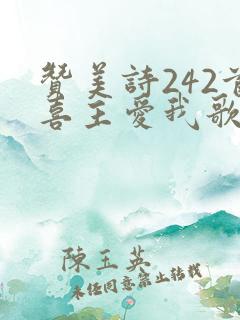 贊美詩242首
喜主愛我歌
陳玉英
未经同意禁止转载